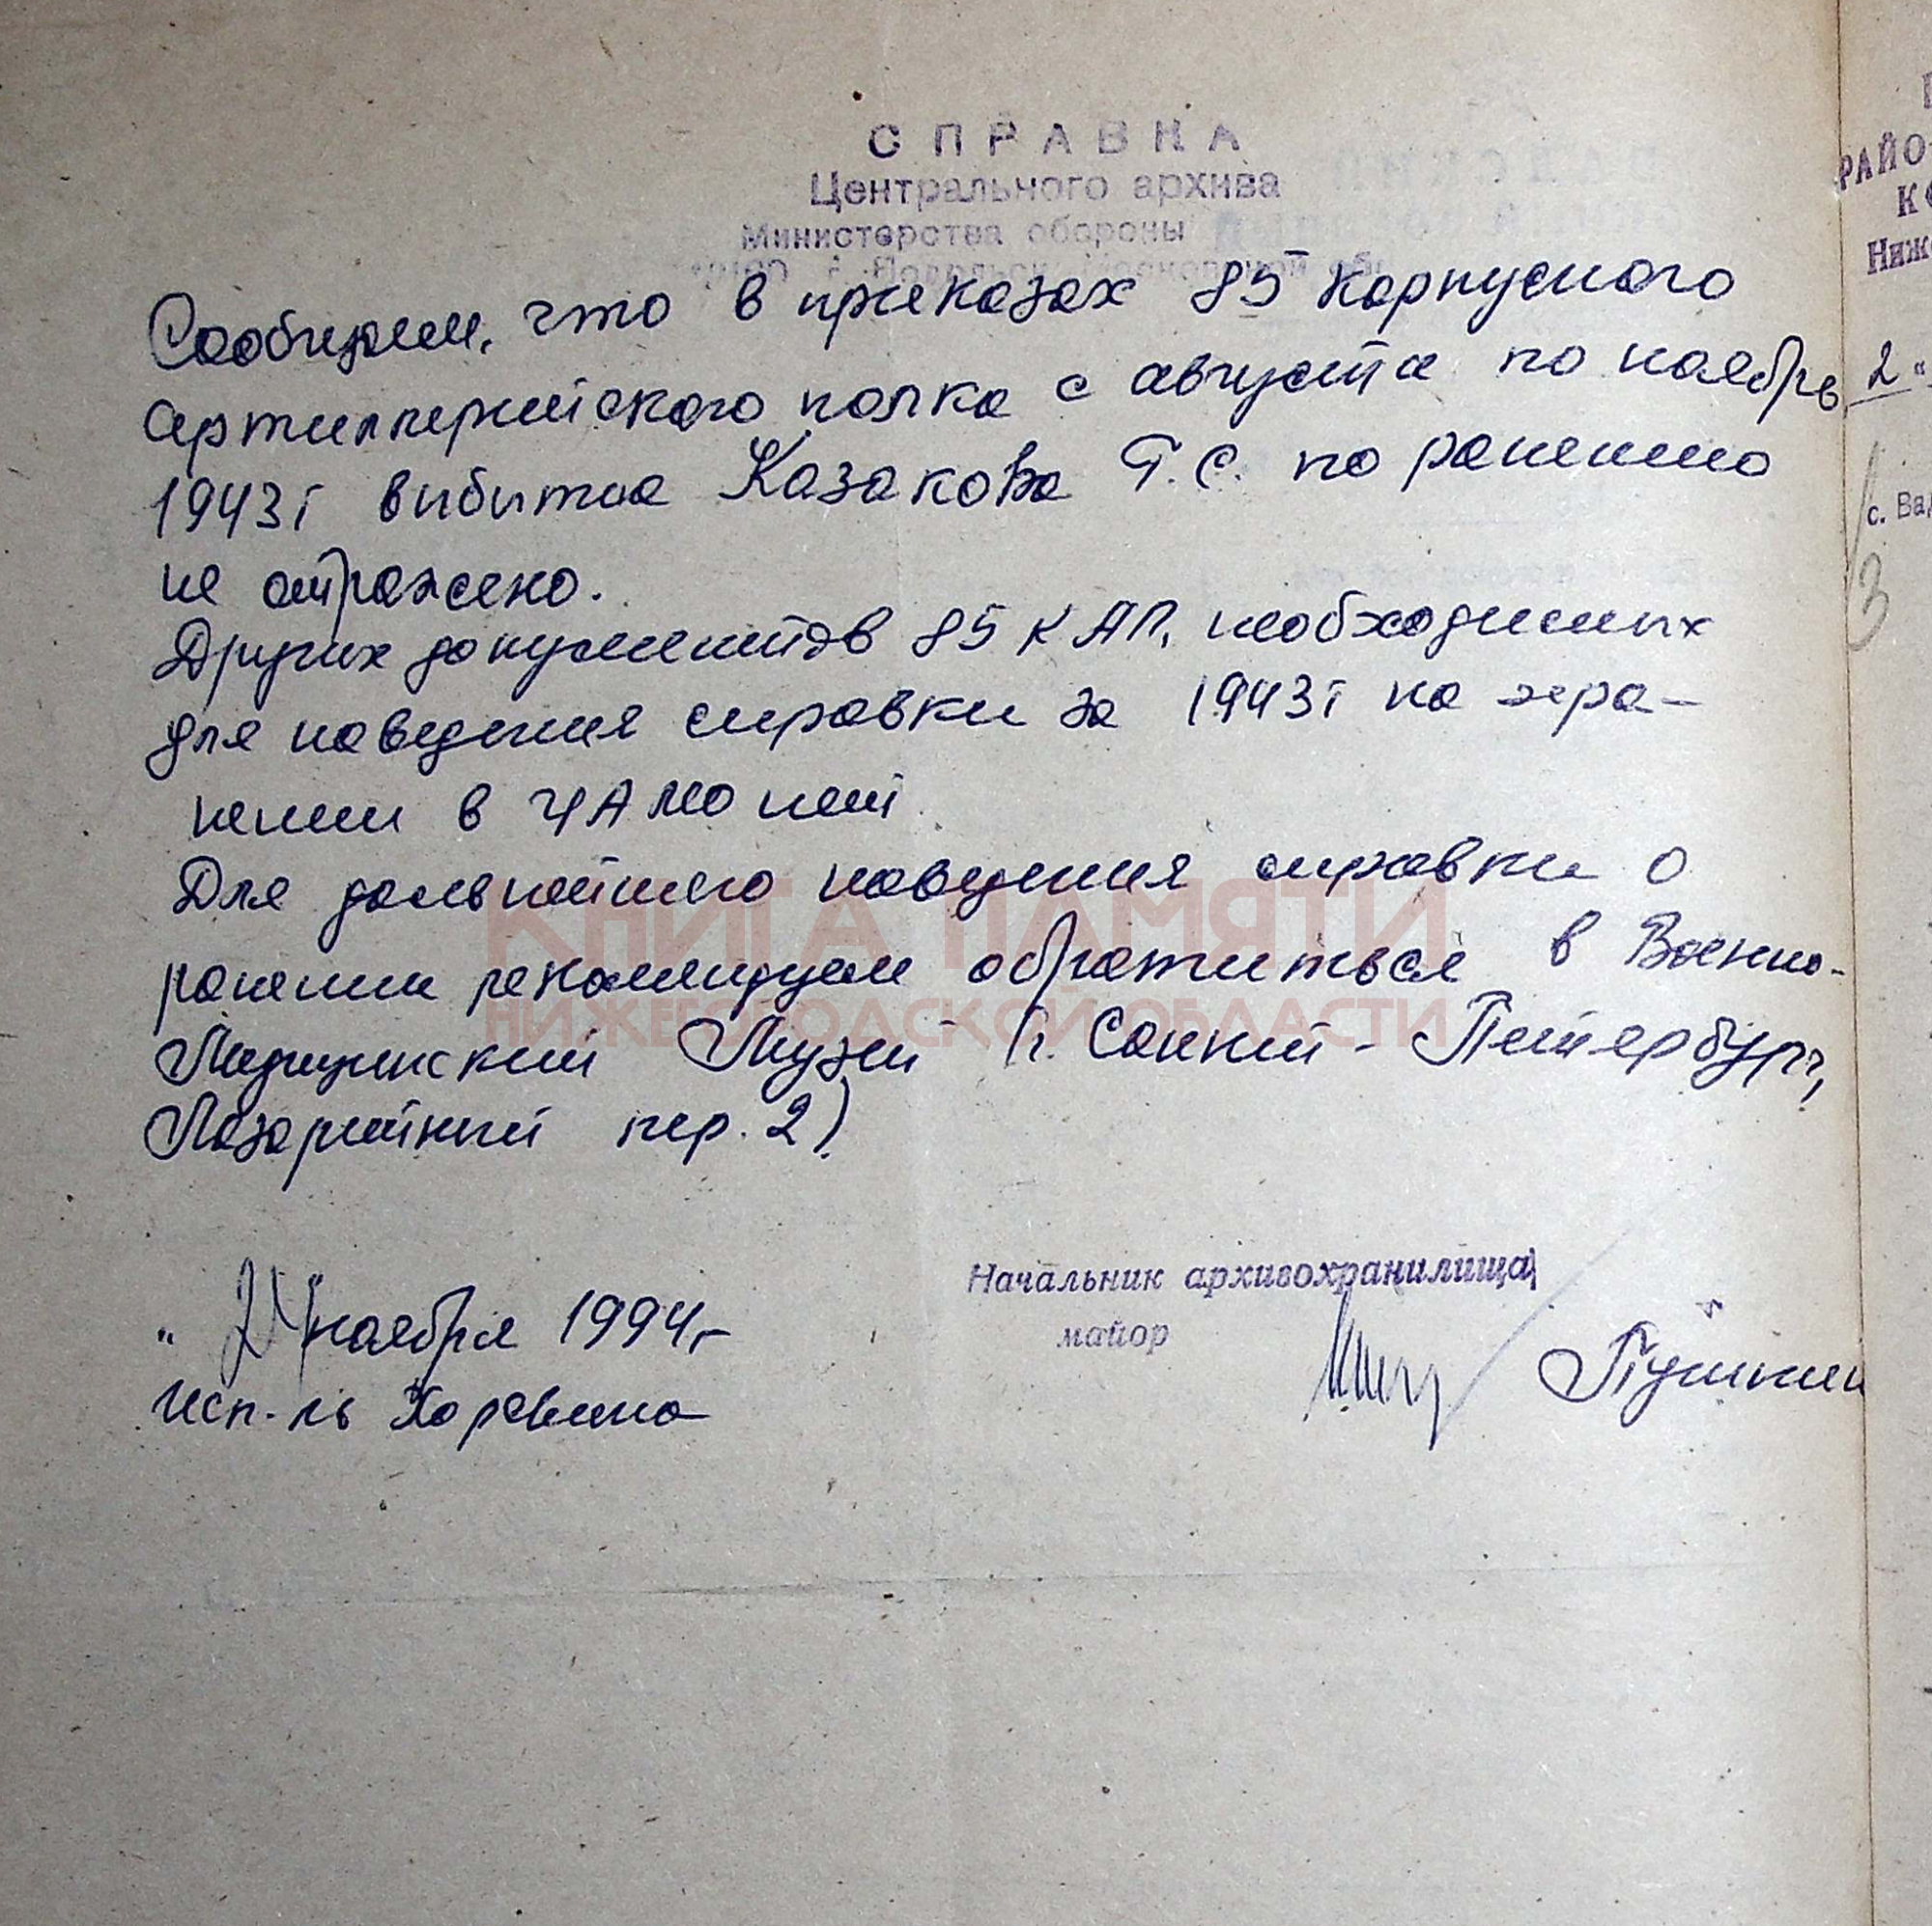 СПРАВКА
Центрального архива
Министерства обороны
Сообщаем, что в приказах 85 Корпусного
артиллерийского полка с августа по ноябрь
1943г выбытие Казакова Г.С. по ранению
не отражено.
Других документов 85 КАП, необходимых
для наведения справки за 1943г на хра-
нении в ЦАМО нет
Для дальнейшего наведения справки о
ранении рекомендуем обратиться в Военно-
Медицинский Музей (г. Санкт-Петербург,
Лазаретный пер. 2)
КНИГА ПАМЯТИ
НИЖЕГОРОДСКОЙ ОБЛАСТИ
Начальник архивохранилища
майор
Пушкин
" ноября 1994г
Исп-ль
РАЙО
Ниж
2 "
с. Вад
3